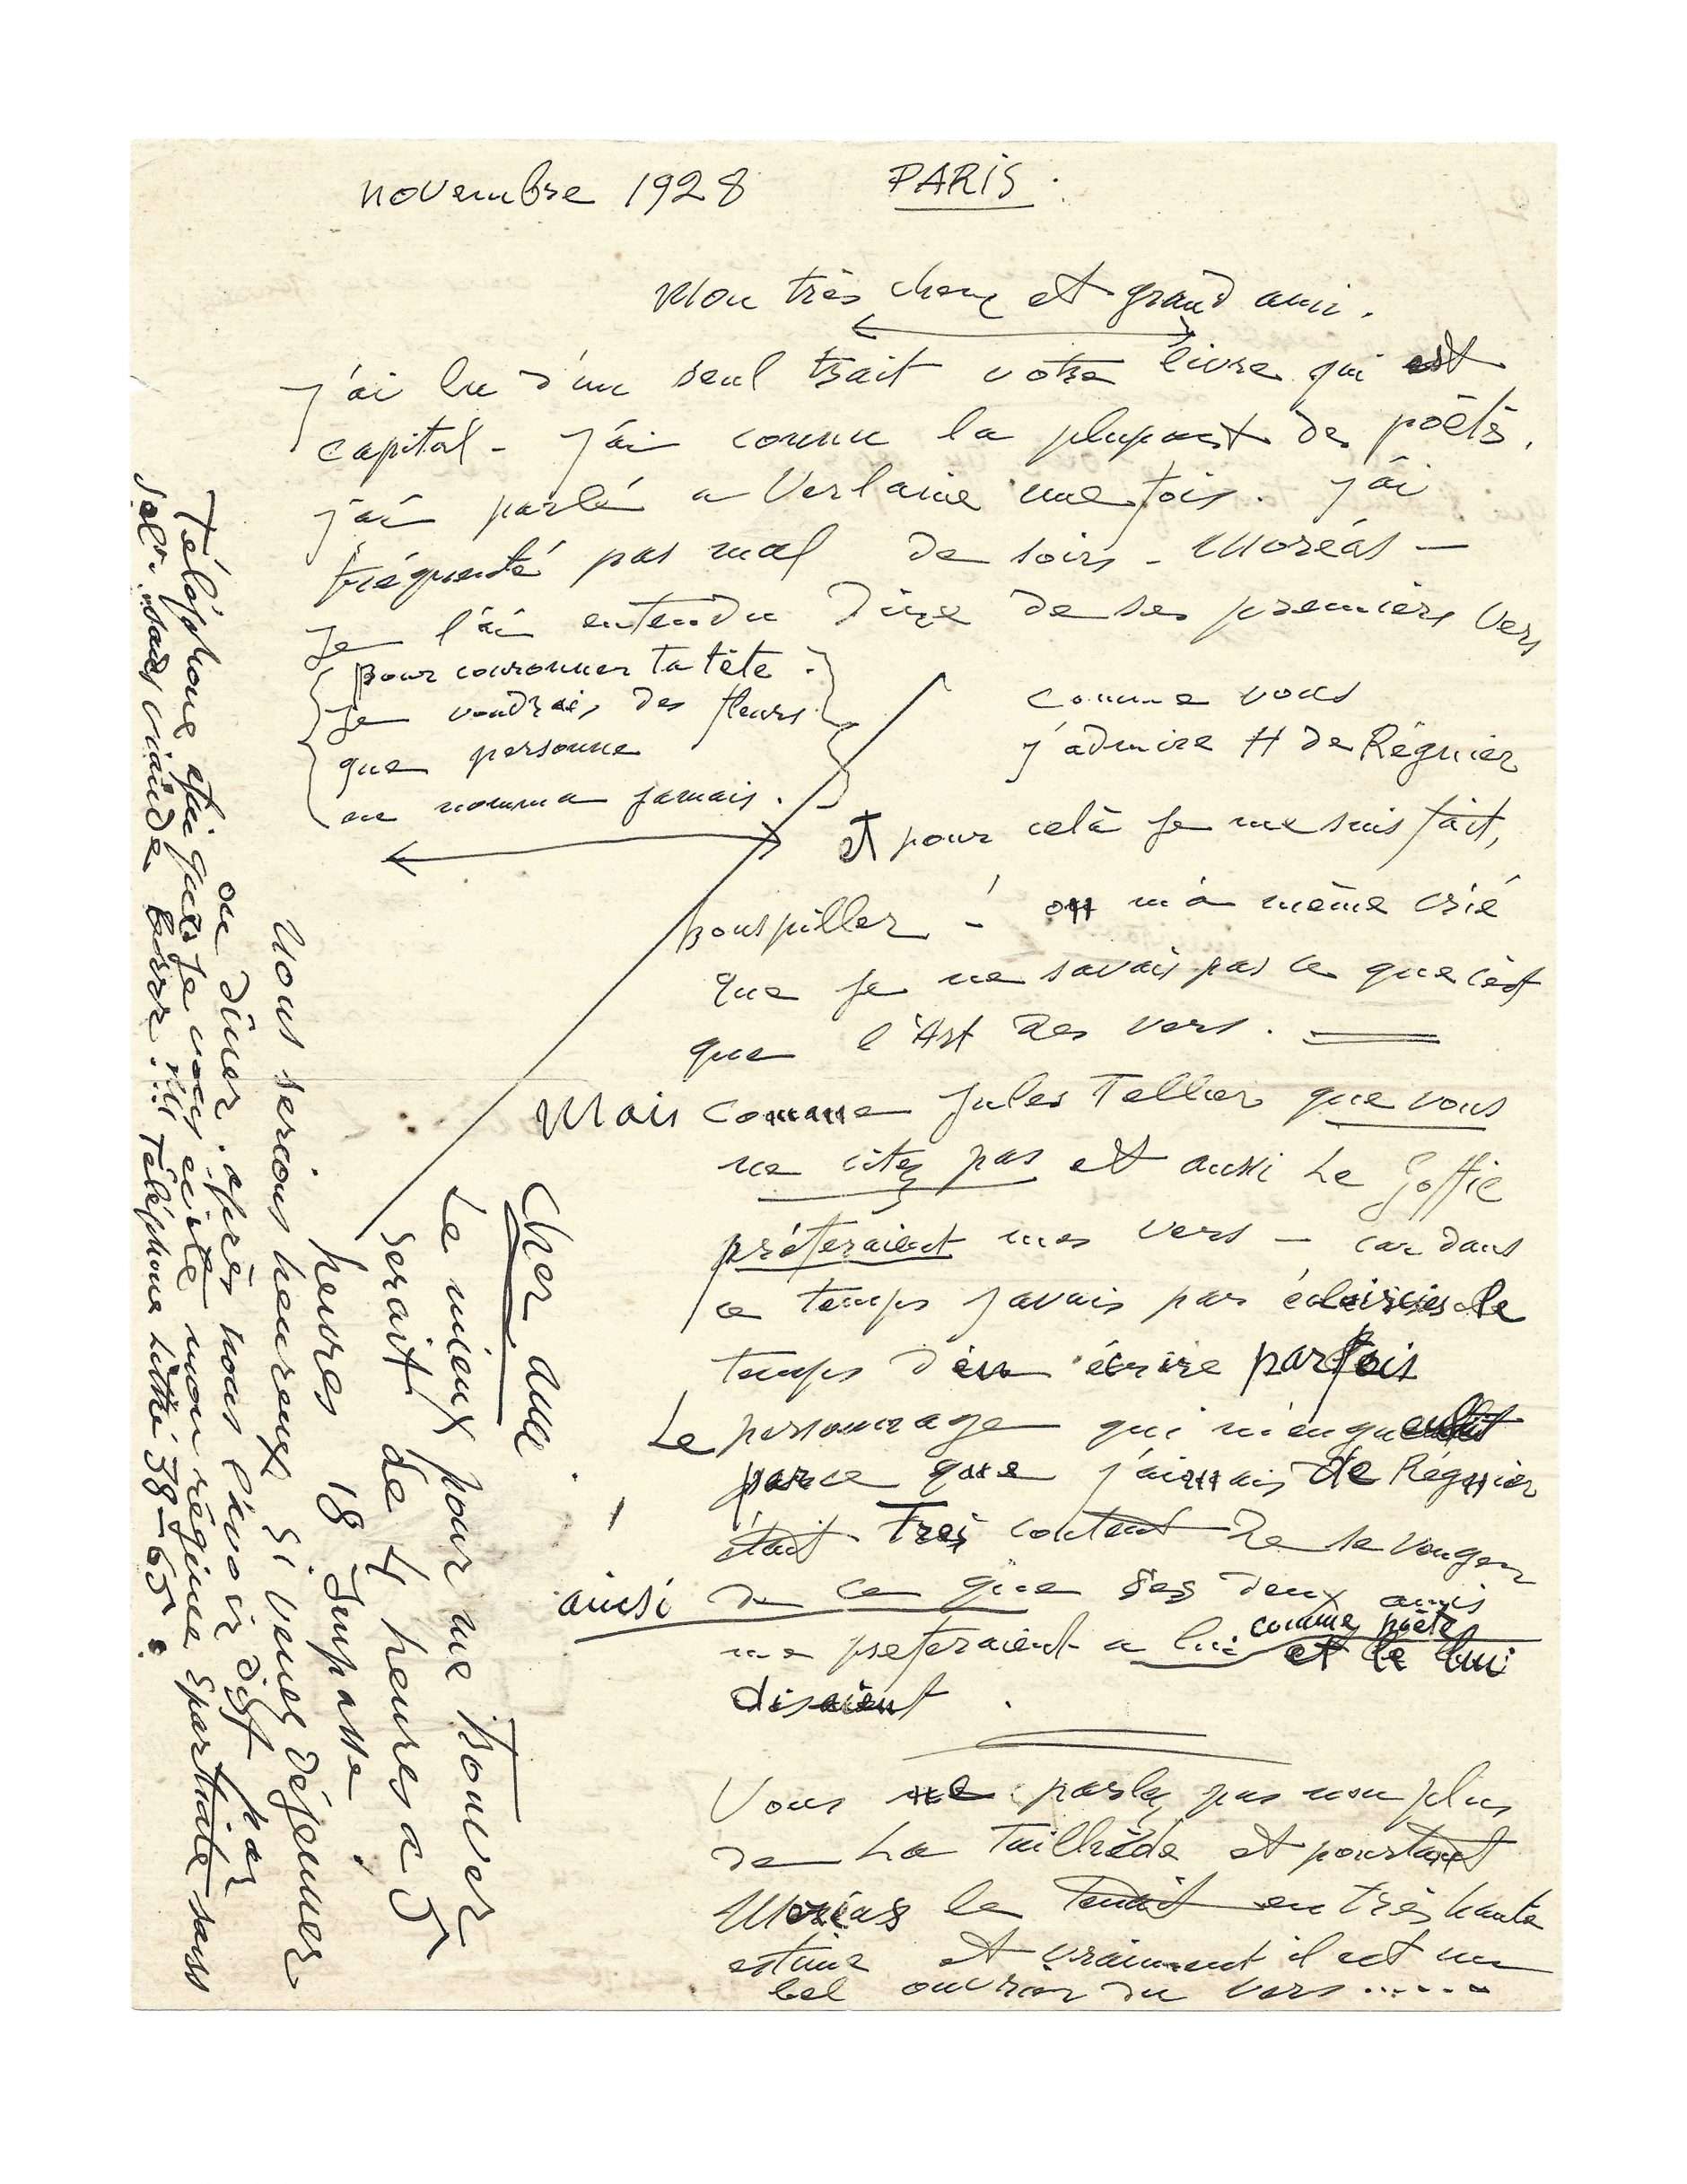 novembre 1928 PARIS.
Mon très cher et grand ami.
J'ai lu d'un seul trait votre livre qui est
capital - J'ai connu la plupart des poëtes,
j'ai parlé a Verlaine une fois. J'ai
fréquenté pas mal de soirs - Moréas -
Je l'ai entendu dire de ses premiers vers
pour couronner ta tête.
je voudrais des fleurs
que personne
ne nomma jamais.
comme vous
j'admire H de Régnier
et pour celà je me suis fait,
houspiller - on m'a même crié
que je ne savais pas ce que c'est
que l'Art des vers.
Mais comme Jules Tellier que vous
ne citez pas et aussi Le Goffic
préféraient mes vers - car dans
ce temps j'avais par éclaircies le
temps d'en écrire parfois
Le personnage qui m'engueulait
parce que j'aimais de Régnier
était Très content de se venger
ainsi de ce que ses deux amis
me preferaient a lui comme poëte et le lui
disaient.
Vous ne parlez pas non plus
de La Tailhède et pourtant
Moréas le tenait en très haute
estime et vraiment il est un
bel ouvrier du vers .....
Cher ami.
Le mieux pour me trouver
serait de 4 heures a 5
heures 18 Impasse
Nous serions heureux si vous venez déjeuner
ou dîner. après nous l'avoir dit par
Téléphone afin que je vous évite mon régime spartiate sans
sel, sans viande Brrr... Téléphone Littré 38-65.